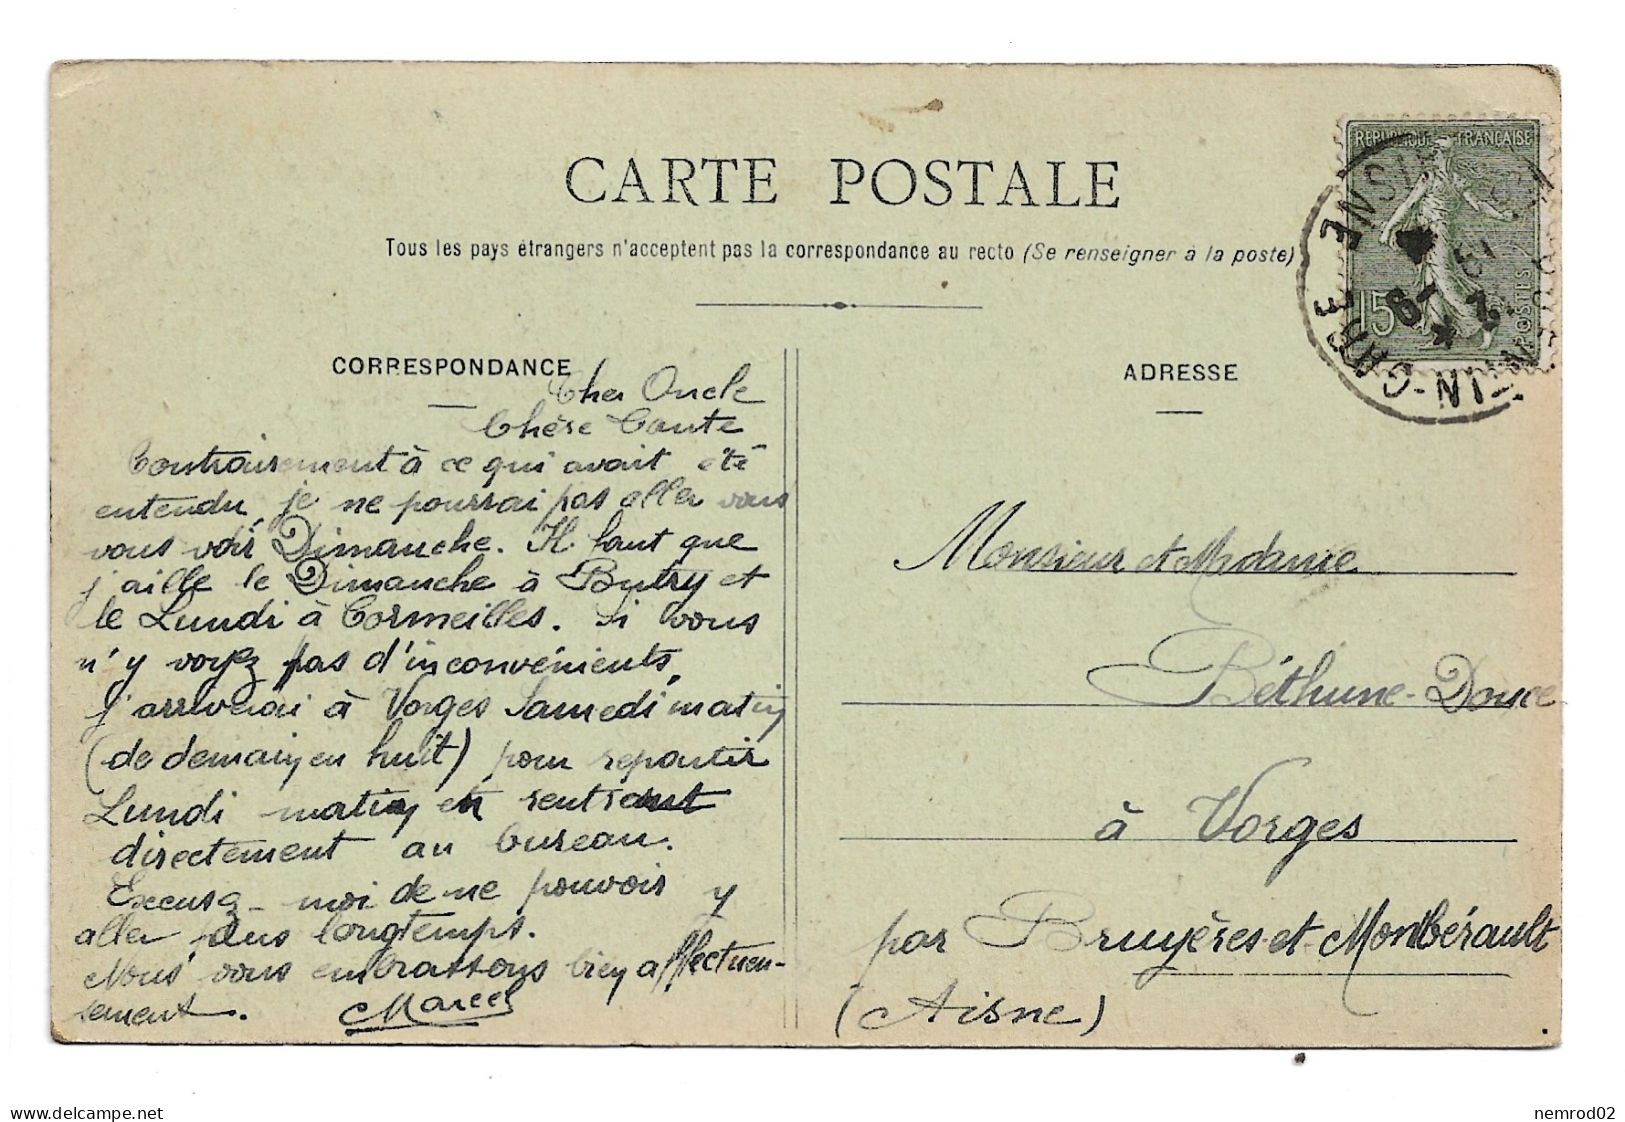 CARTE POSTALE
Tous les pays étrangers n'acceptent pas la correspondance au recto (Se renseigner à la poste)
REPUBLIQUE FRANÇAISE
15
POSTES
CORRESPONDANCE
Cher Oncle
Chère Tante
Contrairement à ce qui avait été
entendu, je ne pourrai pas aller vous
vous voir Dimanche. Il faut que
j'aille le Dimanche à Butry et
le Lundi à Cormeilles. Si vous
n'y voyez pas d'inconvénients,
j'arriverai à Vorges Samedi matin
(de demain en huit) pour repartir
Lundi matin en rentrant
directement au bureau.
Excusez-moi de ne pouvoir y
aller plus longtemps.
Nous vous embrassons bien affectueu-
sement. Marcel
ADRESSE
Monsieur et Madame
Béthune-Douce
à Vorges
par Bruyères-et-Montbérault
(Aisne)
delcampe.net
nemrod02